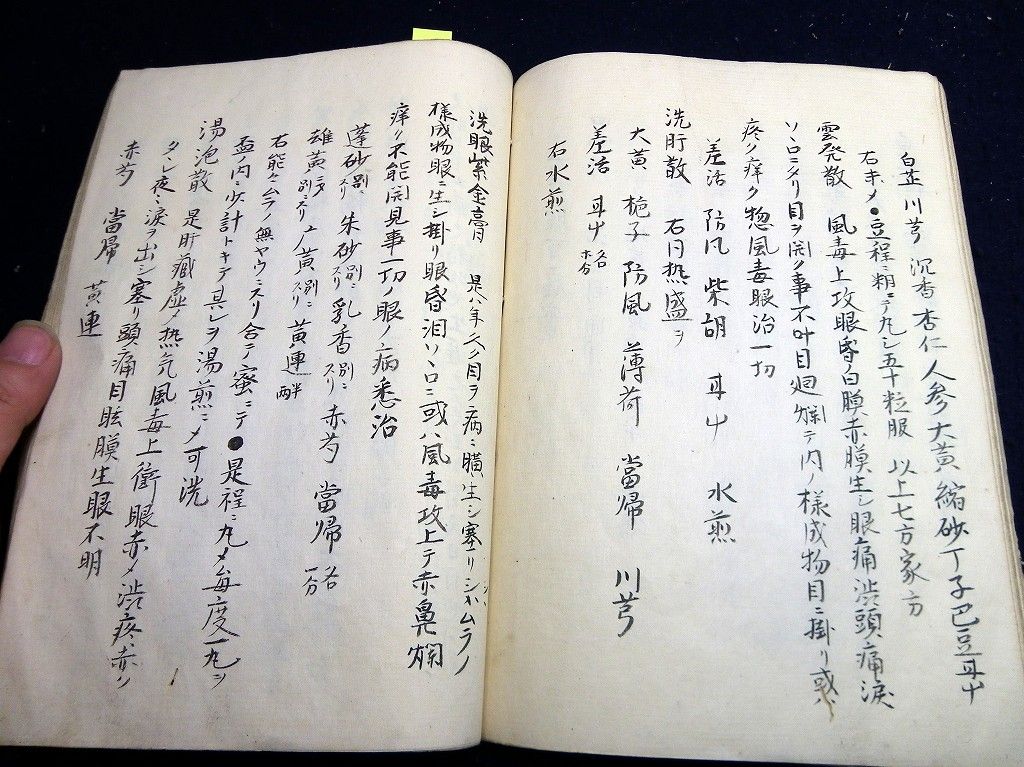 白芷 川芎 沉香 杏仁 人参 大黄 縮砂 丁子 巴豆 耳草
右末メ●豆程ニ糊ニテ丸シ五十粒服 以上七方家方
雲発散 風毒上攻眼昏白膜赤膜生シ眼痛渋頭痛涙
ソヽロニタリ目ヲ開ク事不叶目廻 内ノ様成物目ニ掛リ或ハ
疼ク痒ク惣風毒眼治一切
羗活 防風 柴胡 耳草 水煎
洗肝散 右丹热盛ヲ
大黄 梔子 防風 薄荷 當帰 川芎
羗活 耳草 各
右水煎
洗眼紫金膏 是ハ年久ク目ヲ病ニ膜生シ塞リシハムラノ
様成物眼ニ生シ掛リ眼昏泪ソヽロニ或ハ風毒攻上テ赤鼻爛
痒ク不能開見事一切ノ眼ノ病悉治
蓬砂別ニスリ 朱砂別ニスリ 乳香別ニスリ 赤芍 當帰各一分
雄黄二匁別ニスリ 黄別ニスリ 黄連両半
右能々ムラノ無ヤウニスリ合テ蜜ニテ●是程ニ丸メ毎度一丸ヲ
盃ノ内ニ少計トキテ其レヲ湯煎ニメ可洗
湯泡散 是肝臓虚メ热気風毒上衝眼赤メ渋疼赤リ
タヽレ夜ニ涙ヲ出シ塞リ頭痛目眩膜生眼不明
赤芍 當帰 黄連